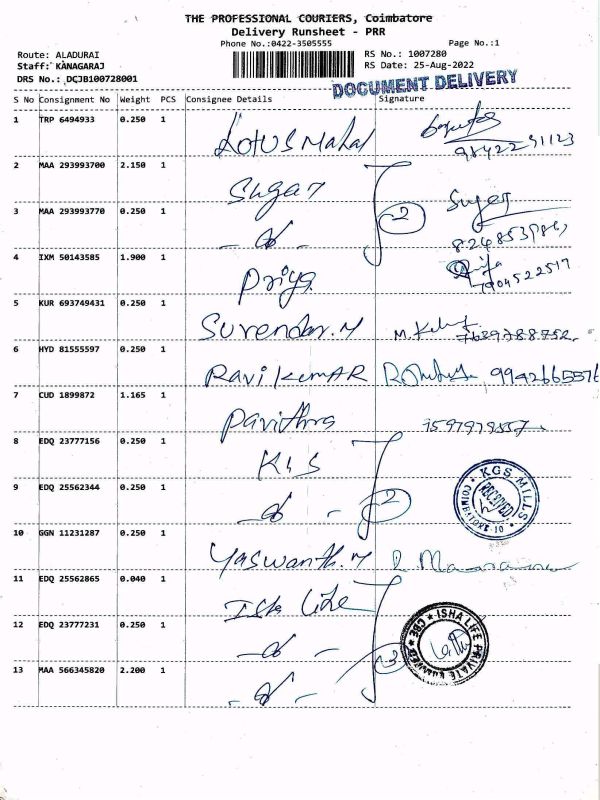 THE PROFESSIONAL COURIERS, Coimbatore
Delivery Runsheet - PRR
Phone No.:0422-3505555
Page No.:1
Route: ALADURAI
RS No.: 1007280
Staff: KANAGARAJ
RS Date: 25-Aug-2022
DRS No.: DCJB100728001
DOCUMENT DELIVERY
S No Consignment No Weight PCS Consignee Details Signature
1 TRP 6494933 0.250 1 Lotus Mahal
2 MAA 293993700 2.150 1 Sugar
3 MAA 293993770 0.250 1 2
4 IXM 50143585 1.900 1 Priya
5 KUR 693749431 0.250 1 Surendar.M
6 HYD 81555597 0.250 1 Ravi kumAR 9942665576
7 CUD 1899872 1.165 1 Pavithra
8 EDQ 23777156 0.250 1 KGS
KGS MILLS
RECEIVED
COIMBATORE-10
9 EDQ 25562344 0.250 1 2
10 GGN 11231287 0.250 1 Yaswanth.M
11 EDQ 25562865 0.040 1 Isha Life
12 EDQ 23777231 0.250 1
ISHA LIFE PRIVATE LIMITED
CBE
13 MAA 566345820 2.200 1 3